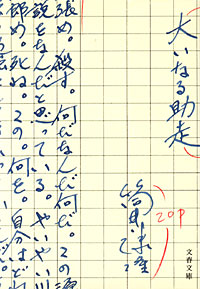 大いなる助走
筒井康隆
20P
文春文庫
め。殺す。何だなんだ何だ。この
をなんだと思っている。やいやい
め。死ね。この。何を。自分はどれ